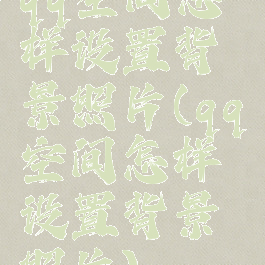 qq空间怎
样设置背
景照片(qq
空间怎样
设置背景
照片)